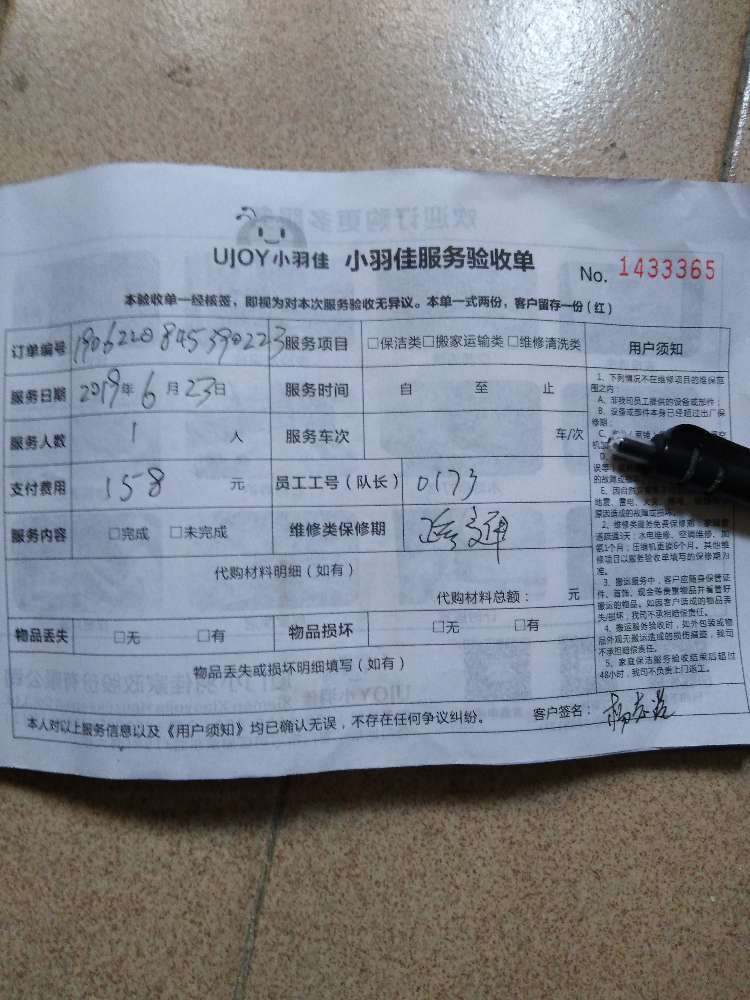 UJOY小羽佳 小羽佳服务验收单 No. 1433365
本验收单一经核签，即视为对本次服务验收无异议。本单一式两份，客户留存一份(红)
订单编号 1906220845390223 服务项目 □保洁类□搬家运输类 □维修清洗类 用户须知
服务日期 2019年 6 月 23日 服务时间 自 至 止
服务人数 1 人 服务车次 车/次
支付费用 158 元 员工工号（队长） 0173
服务内容 □完成 □未完成 维修类保修期
代购材料明细（如有）
代购材料总额： 元
物品丢失 □无 □有 物品损坏 □无 □有
物品丢失或损坏明细填写（如有）
本人对以上服务信息以及《用户须知》均已确认无误，不存在任何争议纠纷。 客户签名：
1、下列情况不在维修项目的维保范
围之内：
A、非我司员工提供的设备或部件；
B、设备或部件本身已经超过出厂保
修期；
E、因自然
地震、雷电、
原因造成的故障或损坏
2、维修类服务免费保修期：
道疏通3天；水电维修、空调维修、加
氨1个月；压缩机更换6个月。其他维
修项目以服务验收单填写的保修期为
准。
3、搬运服务中，客户应随身保管证
件、首饰、现金等贵重物品并看管好
搬运的物品。如因客户造成的物品丢
失/损坏，我司不承担赔偿责任。
4、搬运服务验收时，如外包装或物
品外观无搬运造成的损伤痕迹，我司
不承担赔偿责任。
5、家庭保洁服务验收结束后超过
48小时，我司不负责上门返工。